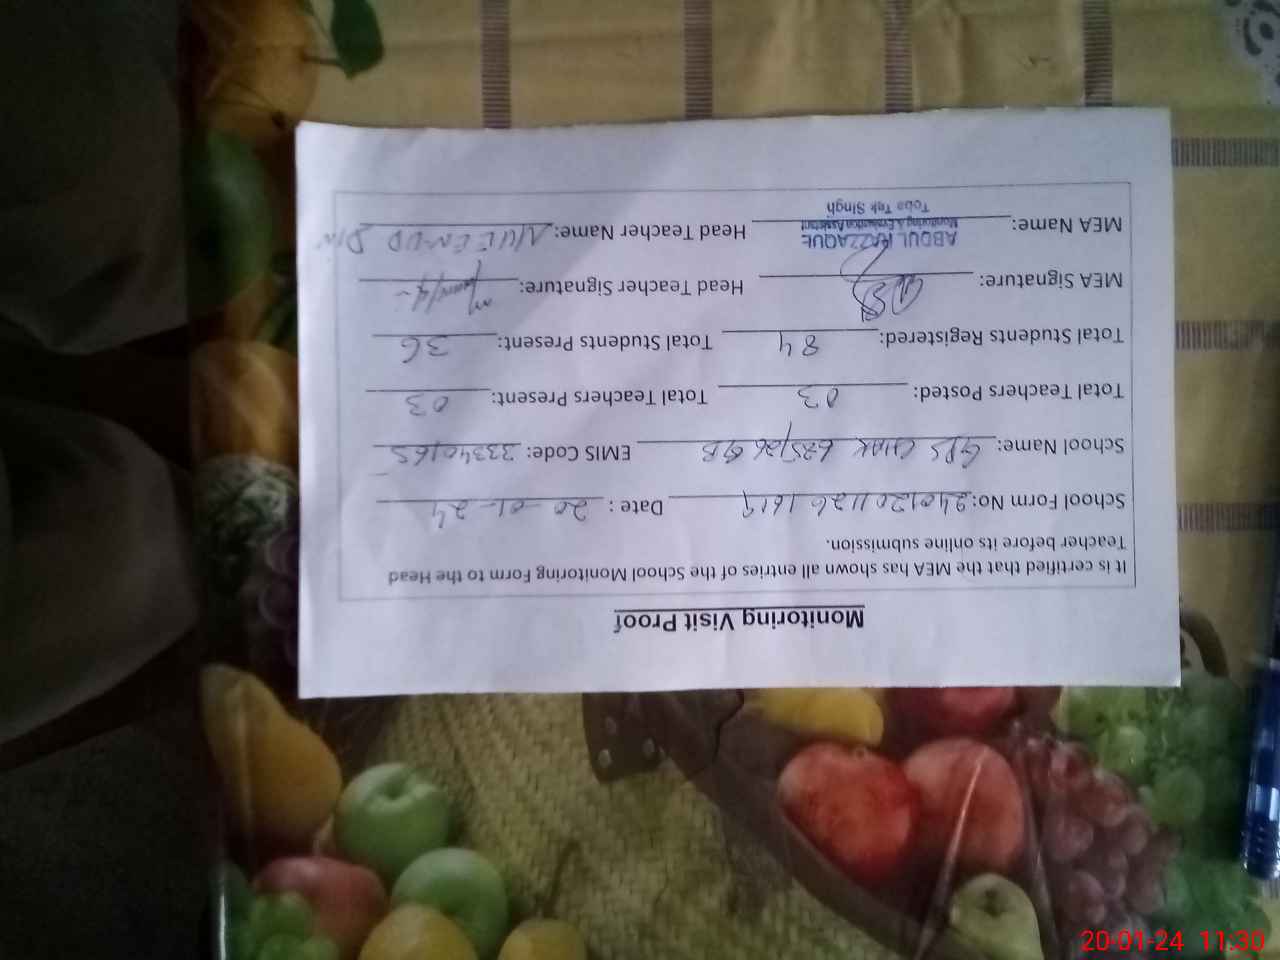 Monitoring Visit Proof
It is certified that the MEA has shown all entries of the School Monitoring Form to the Head
Teacher before its online submission.
School Form No: 2401201126 1619 Date : 20-01-24
School Name: GPS CHAK 625/26 GB EMIS Code: 33340165
Total Teachers Posted: 03 Total Teachers Present: 03
Total Students Registered: 84 Total Students Present: 36
MEA Signature: Head Teacher Signature:
MEA Name: ABDUL RAZZAQUE Head Teacher Name: DIN
Monitoring & Evaluation Assistant
Toba Tek Singh
20-01-24 11:30